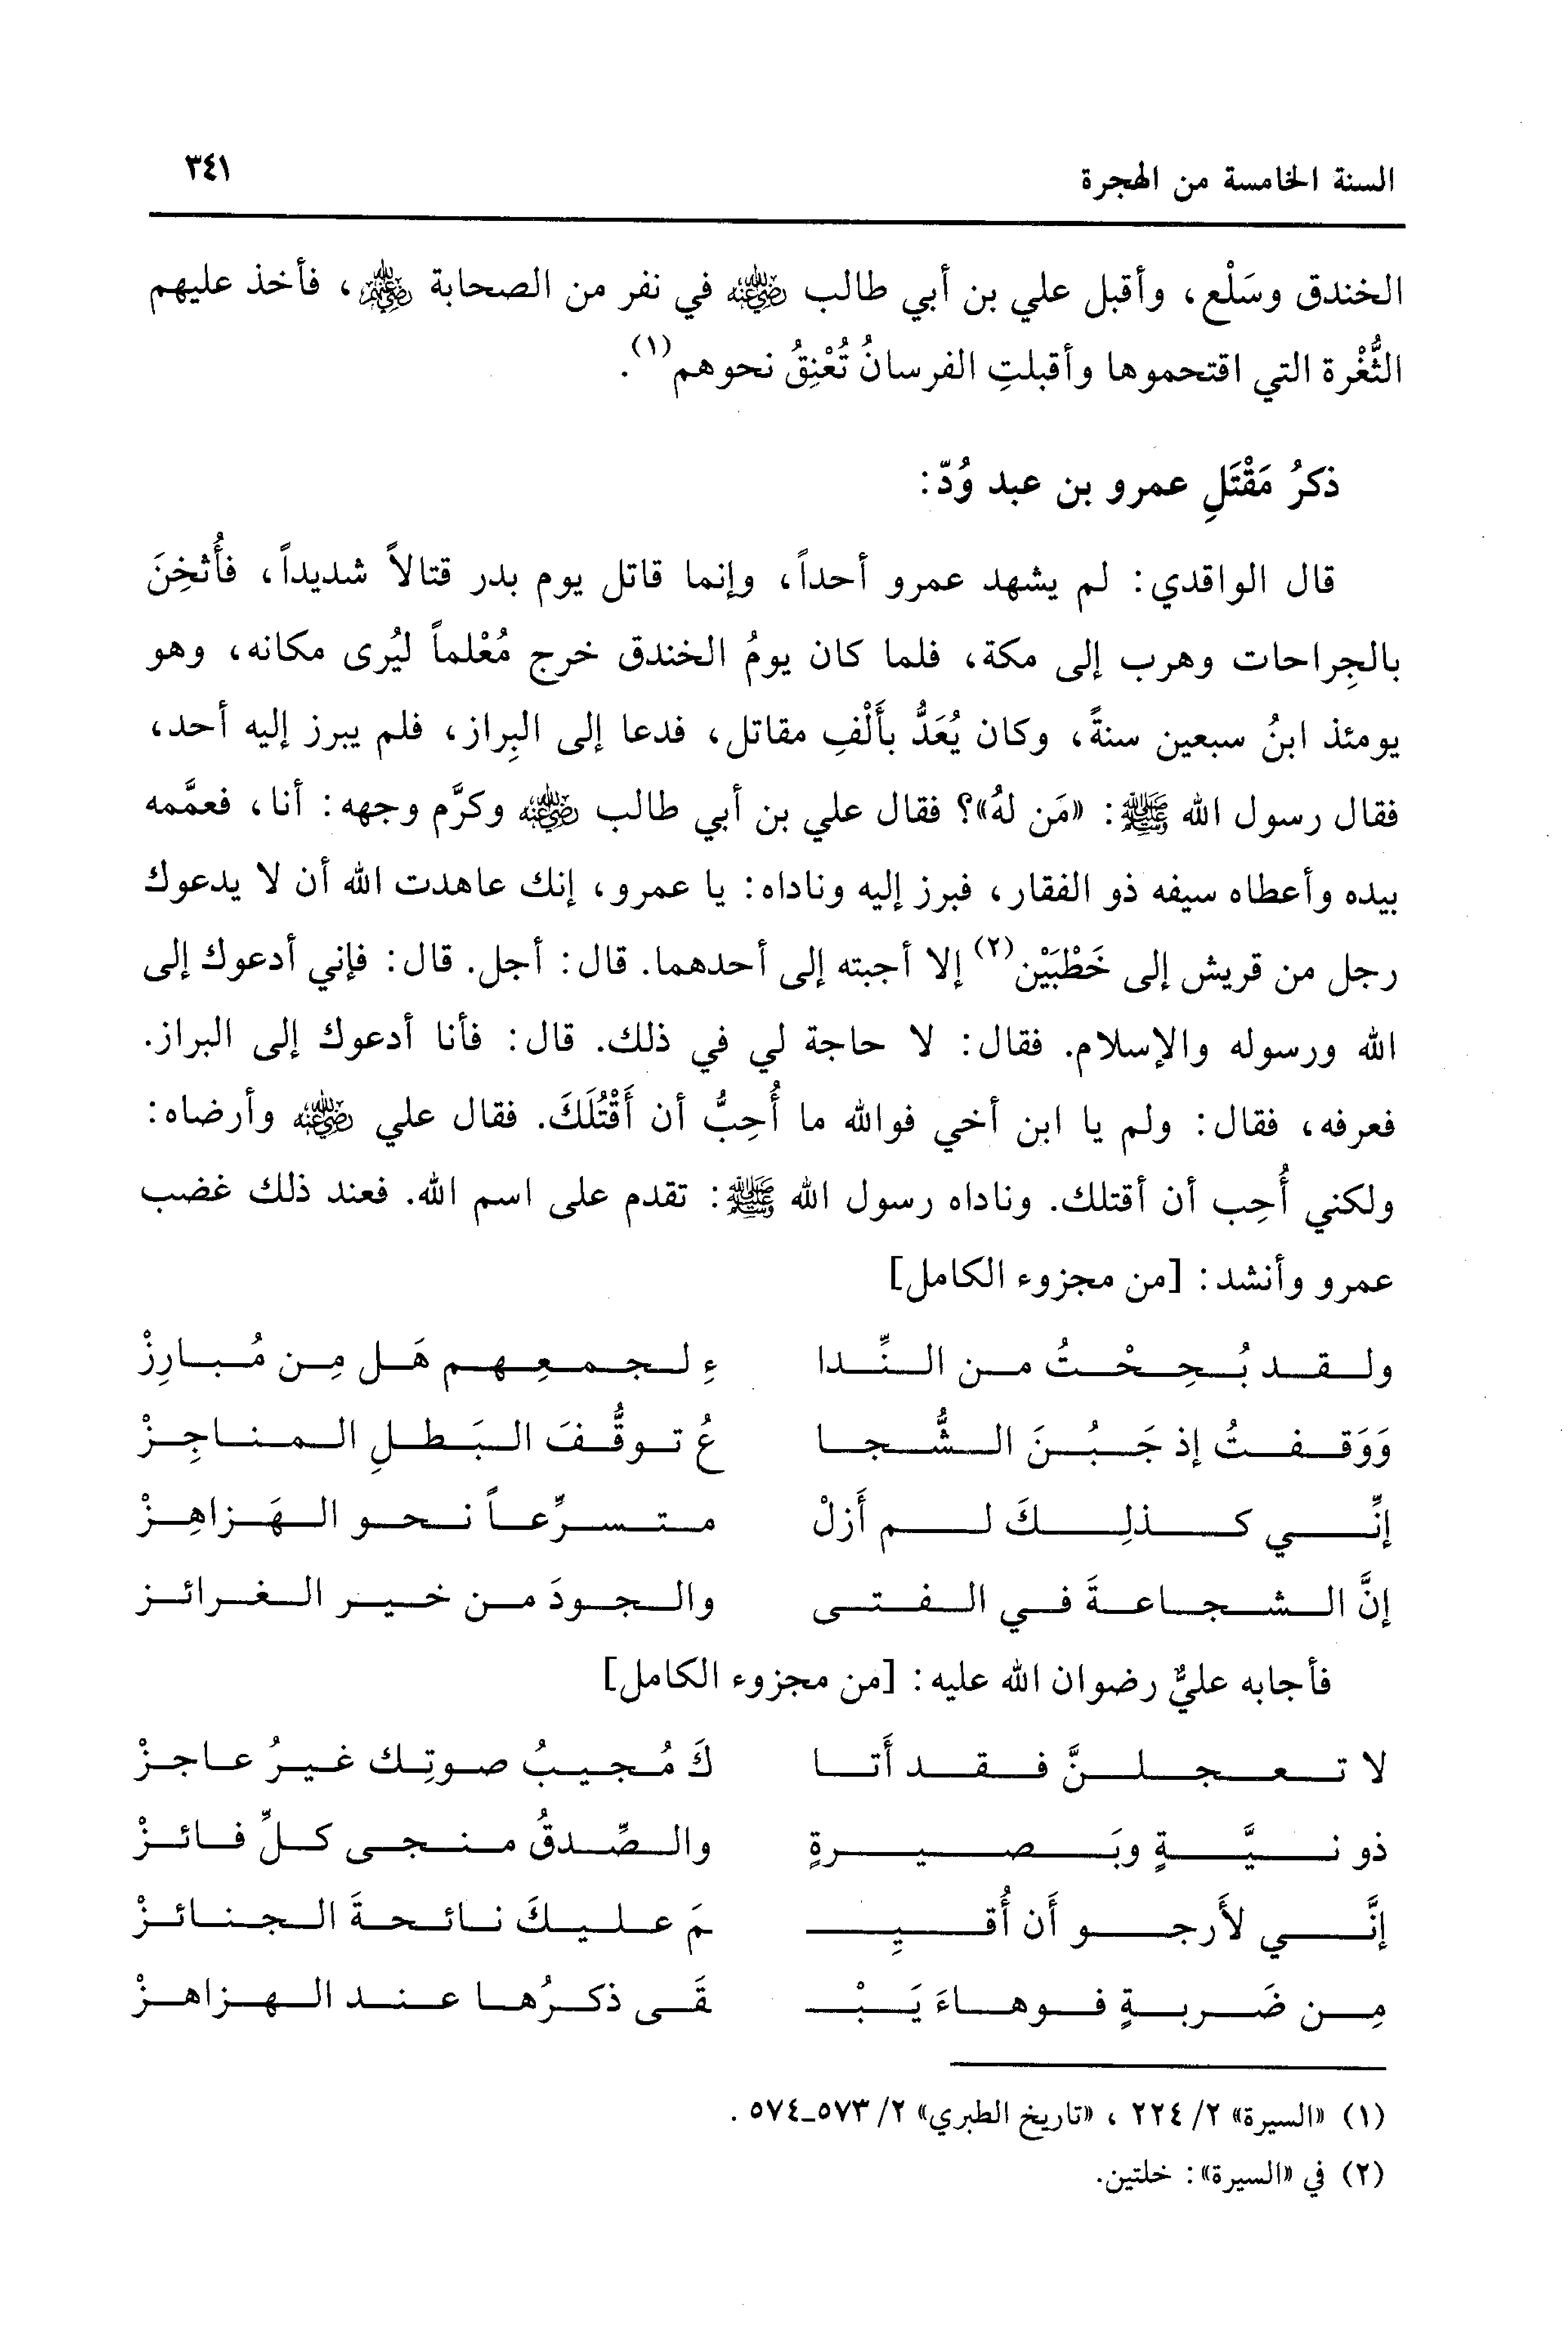 السنة الخامسة من الهجرة ٣٤١
الخندق وسَلْع، وأقبل علي بن أبي طالب رضي الله عنه في نفر من الصحابة رضي الله عنهم، فأخذ عليهم
الثُّغْرة التي اقتحموها وأقبلتِ الفرسانُ تُعْنِقُ نحوهم(١).
ذكرُ مَقْتَلِ عمرو بن عبد وُدّ:
قال الواقدي: لم يشهد عمرو أحداً، وإنما قاتل يوم بدر قتالاً شديداً، فأُثخِنَ
بالجِراحات وهرب إلى مكة، فلما كان يومُ الخندق خرج مُعْلماً ليُرى مكانه، وهو
يومئذ ابنُ سبعين سنةً، وكان يُعَدُّ بأَلْفِ مقاتل، فدعا إلى البِراز، فلم يبرز إليه أحد،
فقال رسول الله ﷺ: «مَن لهُ»؟ فقال علي بن أبي طالب رضي الله عنه وكرَّم وجهه: أنا، فعمَّمه
بيده وأعطاه سيفه ذو الفقار، فبرز إليه وناداه: يا عمرو، إنك عاهدت الله أن لا يدعوك
رجل من قريش إلى خَطْبَيْن(٢) إلا أجبته إلى أحدهما. قال: أجل. قال: فإني أدعوك إلى
الله ورسوله والإسلام. فقال: لا حاجة لي في ذلك. قال: فأنا أدعوك إلى البراز.
فعرفه، فقال: ولم يا ابن أخي فوالله ما أُحِبُّ أن أَقْتُلَكَ. فقال علي رضي الله عنه وأرضاه:
ولكني أُحِب أن أقتلك. وناداه رسول الله ﷺ: تقدم على اسم الله. فعند ذلك غضب
عمرو وأنشد: [من مجزوء الكامل]
ولقد بُحِحْتُ من النِّدا ءِ لجمعِهم هَل مِن مُبارِزْ
وَوَقفتُ إذ جَبُنَ الشُّجا عُ توقُّفَ البَطلِ المناجِزْ
إنِّي كذلِكَ لم أَزلْ متسرِّعاً نحو الهَزاهِزْ
إنَّ الشجاعةَ في الفتى والجودَ من خير الغرائز
فأجابه عليٌّ رضوان الله عليه: [من مجزوء الكامل]
لا تعجلنَّ فقد أَتا كَ مُجيبُ صوتِك غيرُ عاجزْ
ذو نيَّةٍ وبَصيرةٍ والصِّدقُ منجى كلِّ فائزْ
إنَّي لأَرجو أَن أُقيِـ ـمَ عليكَ نائحةَ الجنائزْ
مِن ضَربةٍ فوهاءَ يَبْـ ـقَى ذكرُها عند الهزاهزْ
(١) «السيرة» ٢/ ٢٢٤ ، «تاريخ الطبري» ٢/ ٥٧٣ـ٥٧٤ .
(٢) في «السيرة»: خلتين.